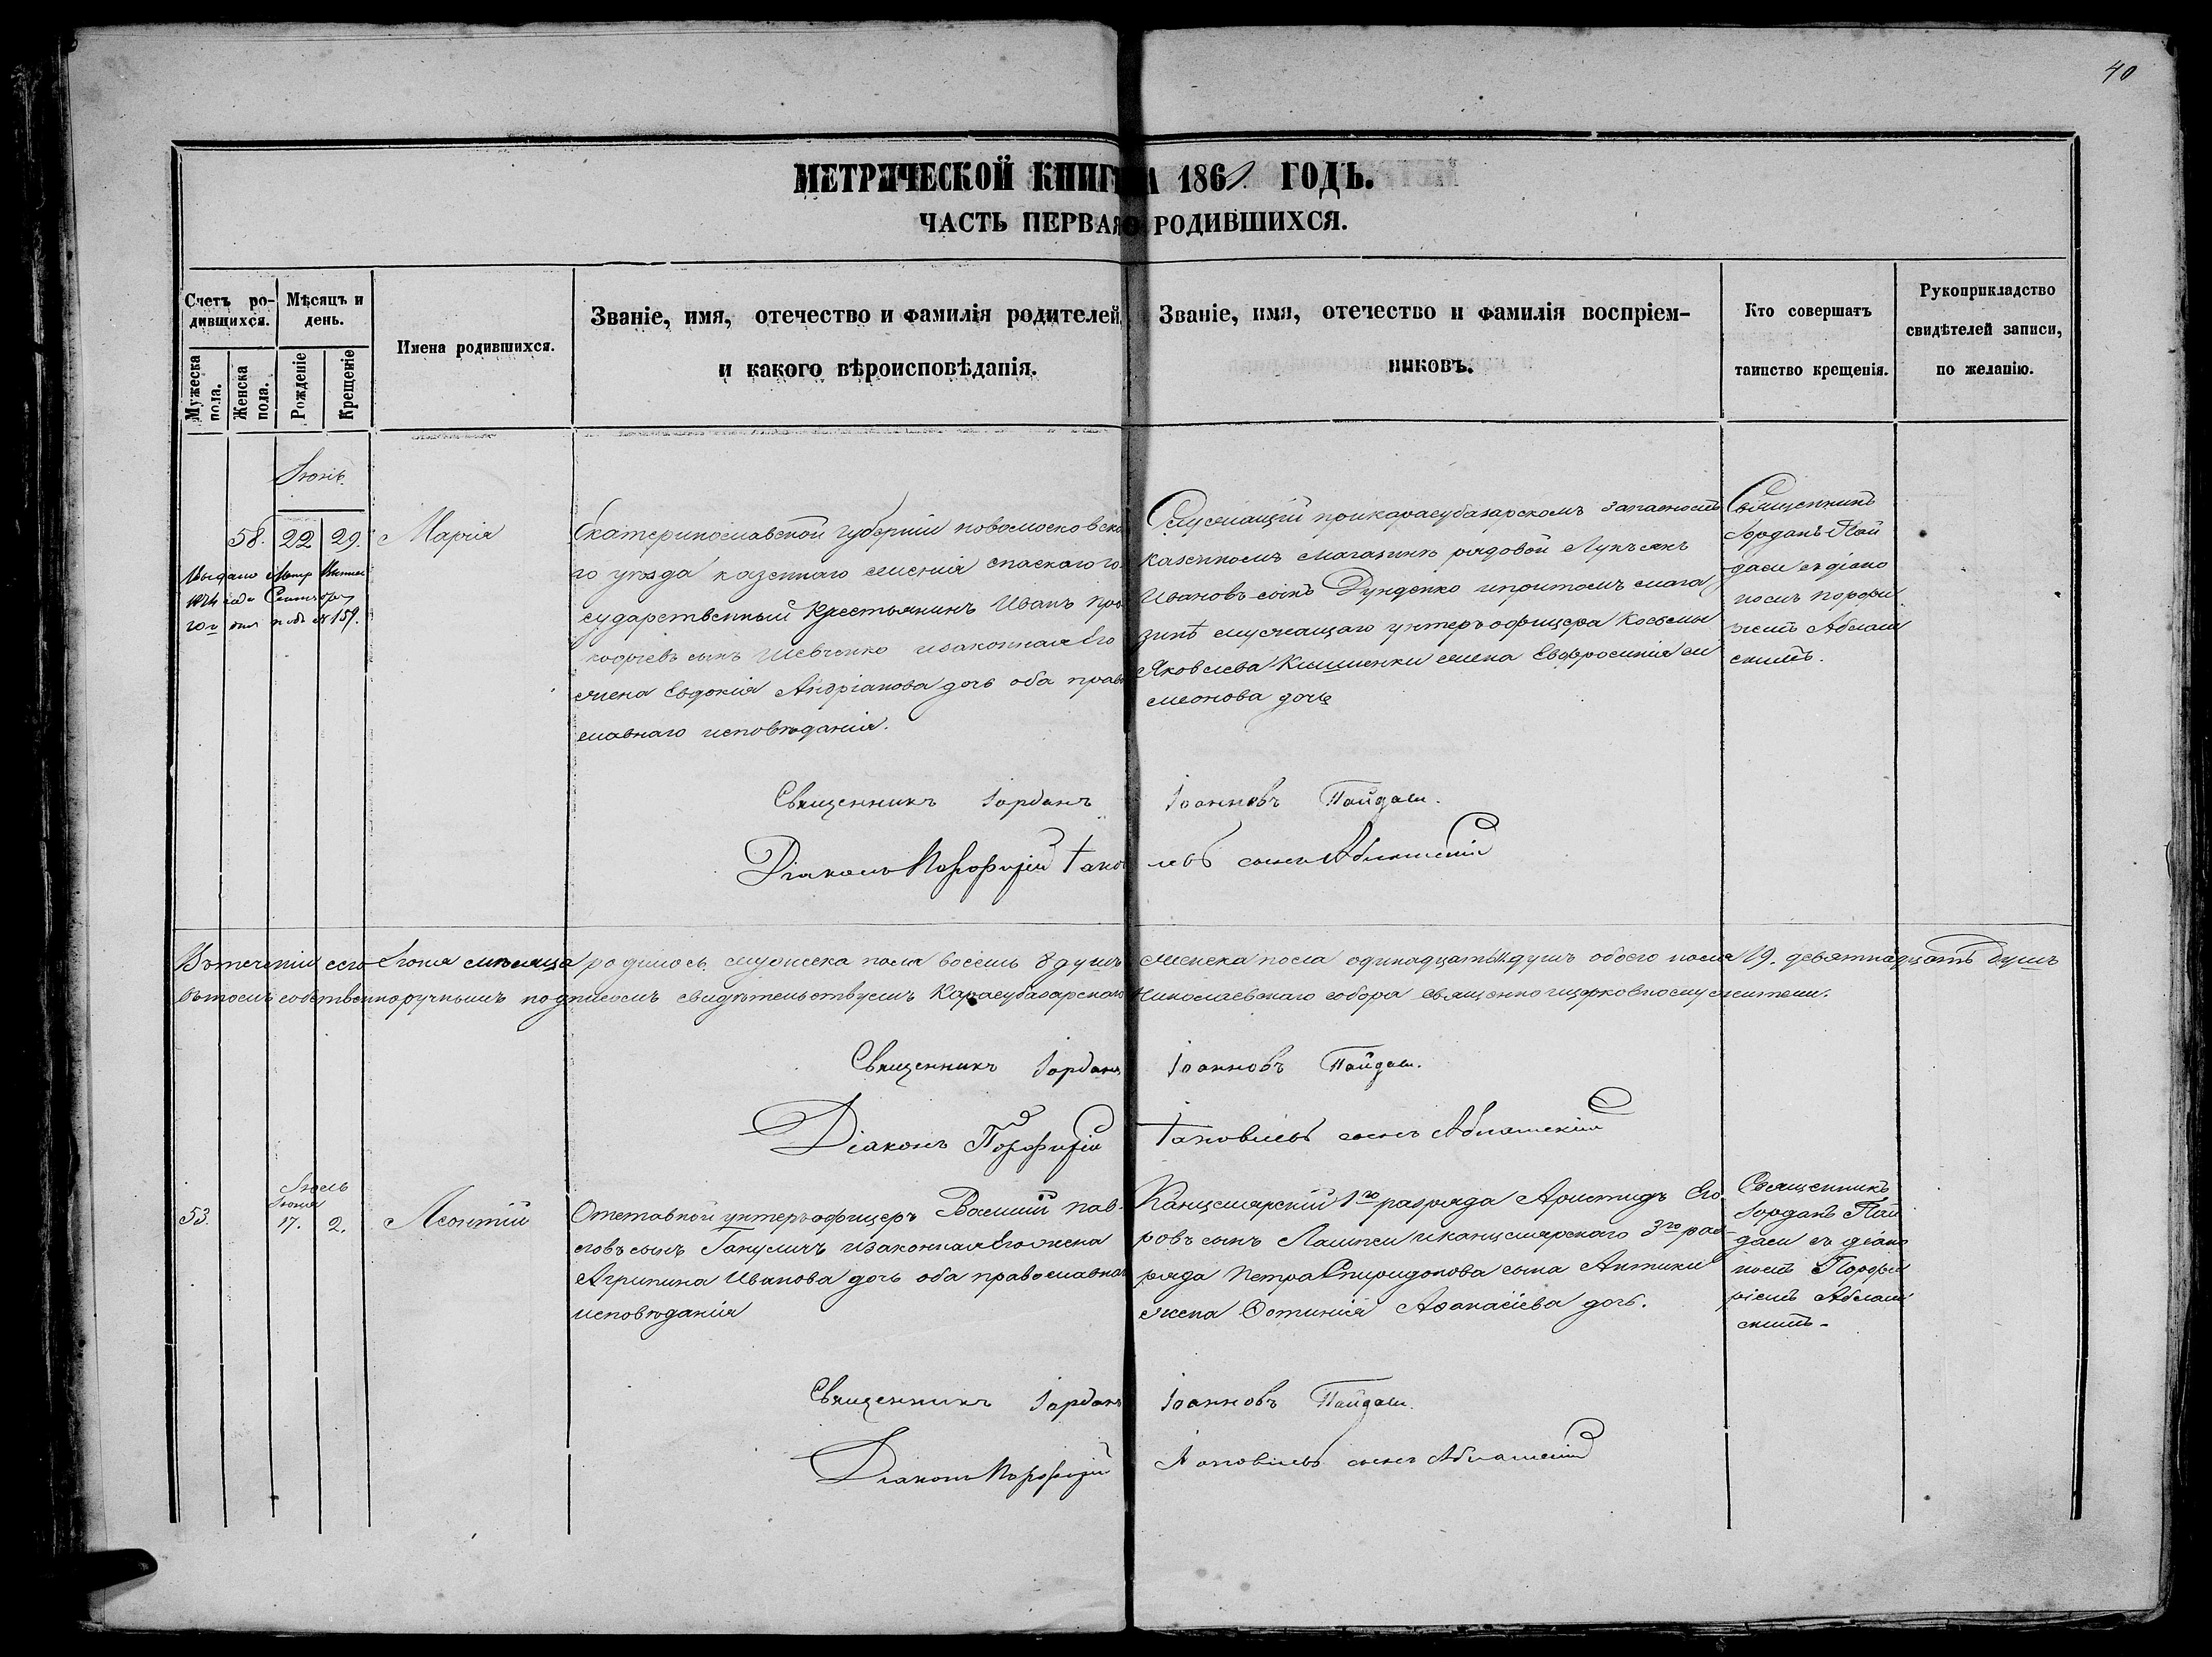 40
МЕТРИЧЕСКОЙ КНИГИ НА 1861 ГОДЪ.
ЧАСТЬ ПЕРВАЯ О РОДИВШИХСЯ.
Счетъ ро-
дившихся.
Мужеска пола.
Женска пола.
Мѣсяцъ и
день.
Рожденіе
Крещеніе
Имена родившихся.
Званіе, имя, отечество и фамилія родителей,
и какого вѣроисповѣданія.
Званіе, имя, отечество и фамилія воспріем-
никовъ.
Кто совершатъ
таинство крещенія.
Рукоприкладство
свидѣтелей записи,
по желанію.
Іюнь
58. 22 29.
Марія
1874 года Сентября
20го дня подъ № 159.
Екатеринославской губерніи новомосковска
го уѣзда казеннаго имѣнія спаскаго го
сударственный крестьянинъ Иванъ Про
кофіевъ сынъ Шевченко изаконная Его
жена Евдокія Андріанова дочь оба право
славнаго исповѣданія.
Служащій прикарасубазарскомъ запасномъ
казенномъ магазинѣ рядовой Лукъянъ
Ивановъ сынъ Дунденко ипритомъ мага
зинѣ служащаго унтеръ офицера Косьмы
Яковлева Кишинки жена Евфросинія си
меонова дочь
Священникъ
Іорданъ Пай
даси съ діако
номъ порфи
ріемъ Аблаш
скимъ.
Священникъ Іорданъ Іоанновъ Пайдаси.
Діаконъ Порфирій сынъ Аблашскій
Втеченіи сего Іюня мѣсяца родилось мужеска пола восемь 8 душъ женска пола одинадцать 11 душъ обоего пола 19. девятнадцать душъ
втомъ собственноручнымъ подписомъ свидѣтельствуемъ Карасубазарскаго Николаевскаго собора священно ицерковнослужители.
Священникъ Іорданъ Іоанновъ Пайдаси.
Діаконъ Порфирій сынъ Аблашскій
Іюль
Іюня
53. 17. 2.
Леонтій
Отставной унтеръ офицеръ Василій Пав-
ловъ сынъ Ганусичъ изаконная Его жена
Агрипина Иванова дочь оба православнаго
исповѣданія
Канцелярскій 1го разряда Аристидъ Его
ровъ сынъ Лампси иканцелярскаго 3го раз-
ряда Петра Спиридонова сына Антики
жена Фотинія Афанасіева дочь.
Священникъ
Іорданъ Пай
даси съ діако
номъ Порфи
ріемъ Аблаш
скимъ-
Священникъ Іорданъ Іоанновъ Пайдаси.
Діаконъ Порфирій сынъ Аблашскій